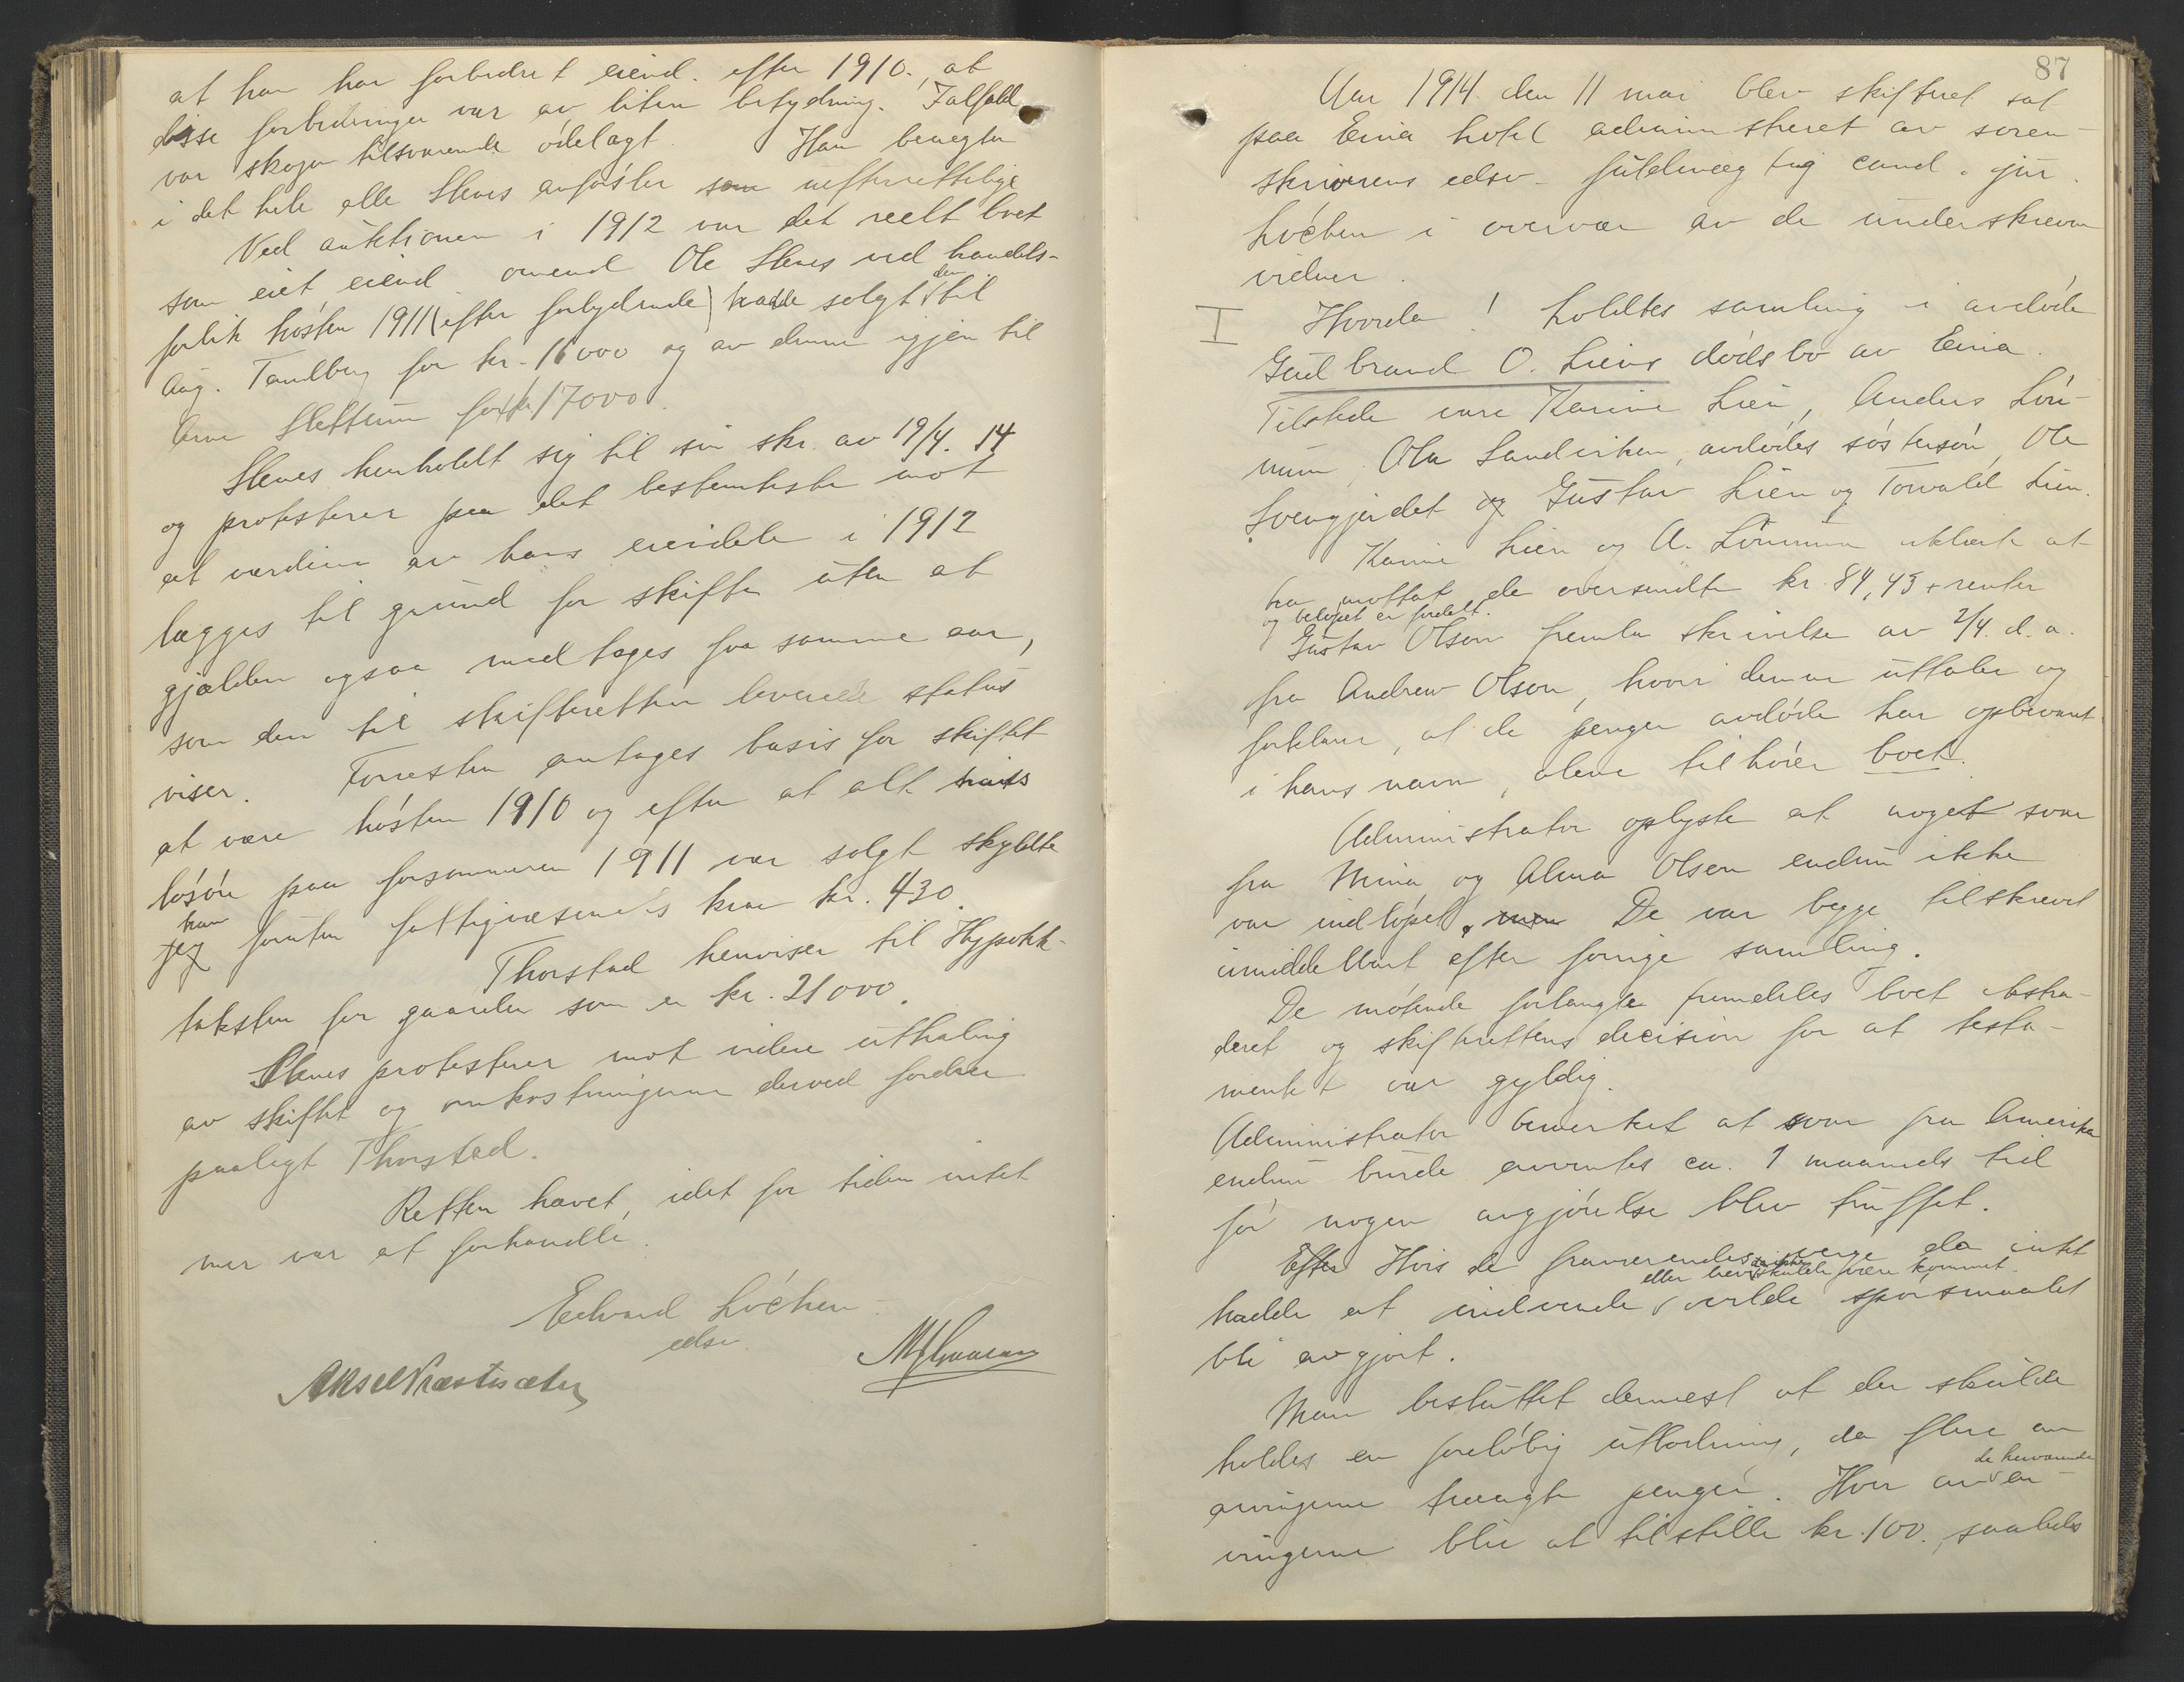 at han har forbedret eiend. efter 1910. at
disse forbedringer var av liten betydning. Ialfald
var skogen tilsvarende ødelagt. Han benegter
i det hele alle Stenes anførsler som uefterrettelige
Ved auktionen i 1912 var det reelt boet
som eiet eiend. omend Ole Stenes ved handels-
den
forlik høsten 1911 (efter forlydende) hadde solgt til
Aug. Tandberg for kr. 16000 og av denne igjen til
Arne Slettum for kr 17000.
Stenes henholdt sig til sin skr. av 19/4. 14
og protesterer paa det bestemteste mot
at værdien av hans eiendele i 1912
lægges til grund for skiftet uten at
gjælden ogsaa medtages fra samme aar,
som den til skifteretten leverede status
viser. Forresten antages basis for skiftet
at være høsten 1910 og efter at alt hans
løsøre paa forsommeren 1911 var solgt skyldte
han
jeg foruten fattigvæsenets krav kr. 430.
Thorstad henviser til Hypothek-
taksten for gaarden som er kr. 21000.
Stenes protesterer mot videre uthaling
av skiftet og omkostningerne derved fordrer
paalagt Thorstad.
Retten hævet, idet for tiden intet
mer var at forhandle.
Edvard Lóchen
edsv.
Aksel Præstesæter
87
Aar 1914 den 11 mai blev skifteret sat
paa Eina hotel administreret av soren-
skriverens edsv. fuldmægtig cand. jur.
Lóchen i overvær av de underskrevne
vidner.
I Hvorda! holdtes samling i avdøde
Gudbrand O. Liens dødsbo av Eina.
Tilstede vare Karine Lien, Anders Løn-
num, Ole Sandviken, avdødes søstersøn, Ole
Svengjerdet og Gustav Lien og Torvald Lien.
Karine Lien og A. Lønnum erklærte at
ha mottat de oversendte kr. 84,43 + renter
og beløpet er fordelt.
Gustav Olsen fremla skrivelse av 2/4. d.a.
fra Andrew Olson, hvori denne uttaler og
forklarer, at de penger avdøde har opbevart
i hans navn, alene tilhører boet.
Administrator oplyste at noget svar
fra Mina og Alma Olsen endnu ikke
var indløpet, men De var begge tilskrevet
umiddelbart efter forrige samling.
De møtende forlangte fremdeles boet extra-
deret og skifterettens decision for at testa-
mentet var gyldig.
Administrator bemerket at svar fra Amerika
endnu burde avventes ca. 1 maaneds tid
før nogen avgjørelse blev truffet.
Efter Hvis de fraværendes verge da intet
eller brev ikke skulde være kommet
hadde at indvende vilde spørsmaalet
bli avgjort.
Man besluttet dernæst at der skulde
holdes en foreløbig utlodning, da flere av
de herværende
arvingerne trængte penger. Hver av ar-
vingerne blir at tilstille kr. 100., saaledes